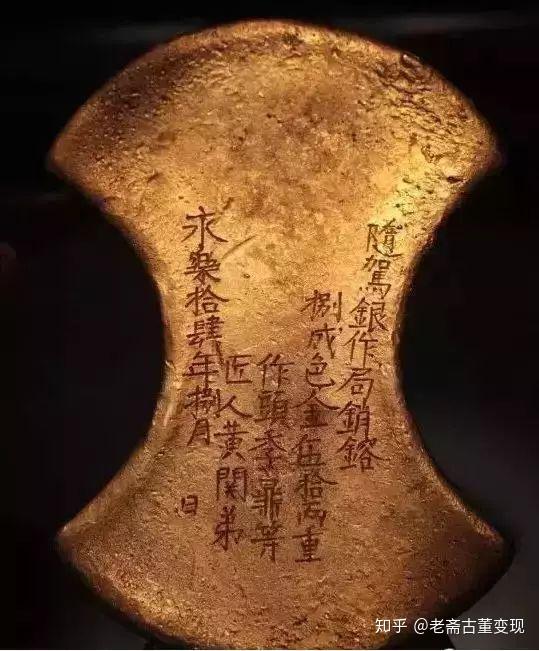 隨駕銀作局銷鎔
捌成色金伍拾両重
作頭季鼎等
匠人黄関弟
永樂拾肆年捌月 日
知乎 @老斋古董变现